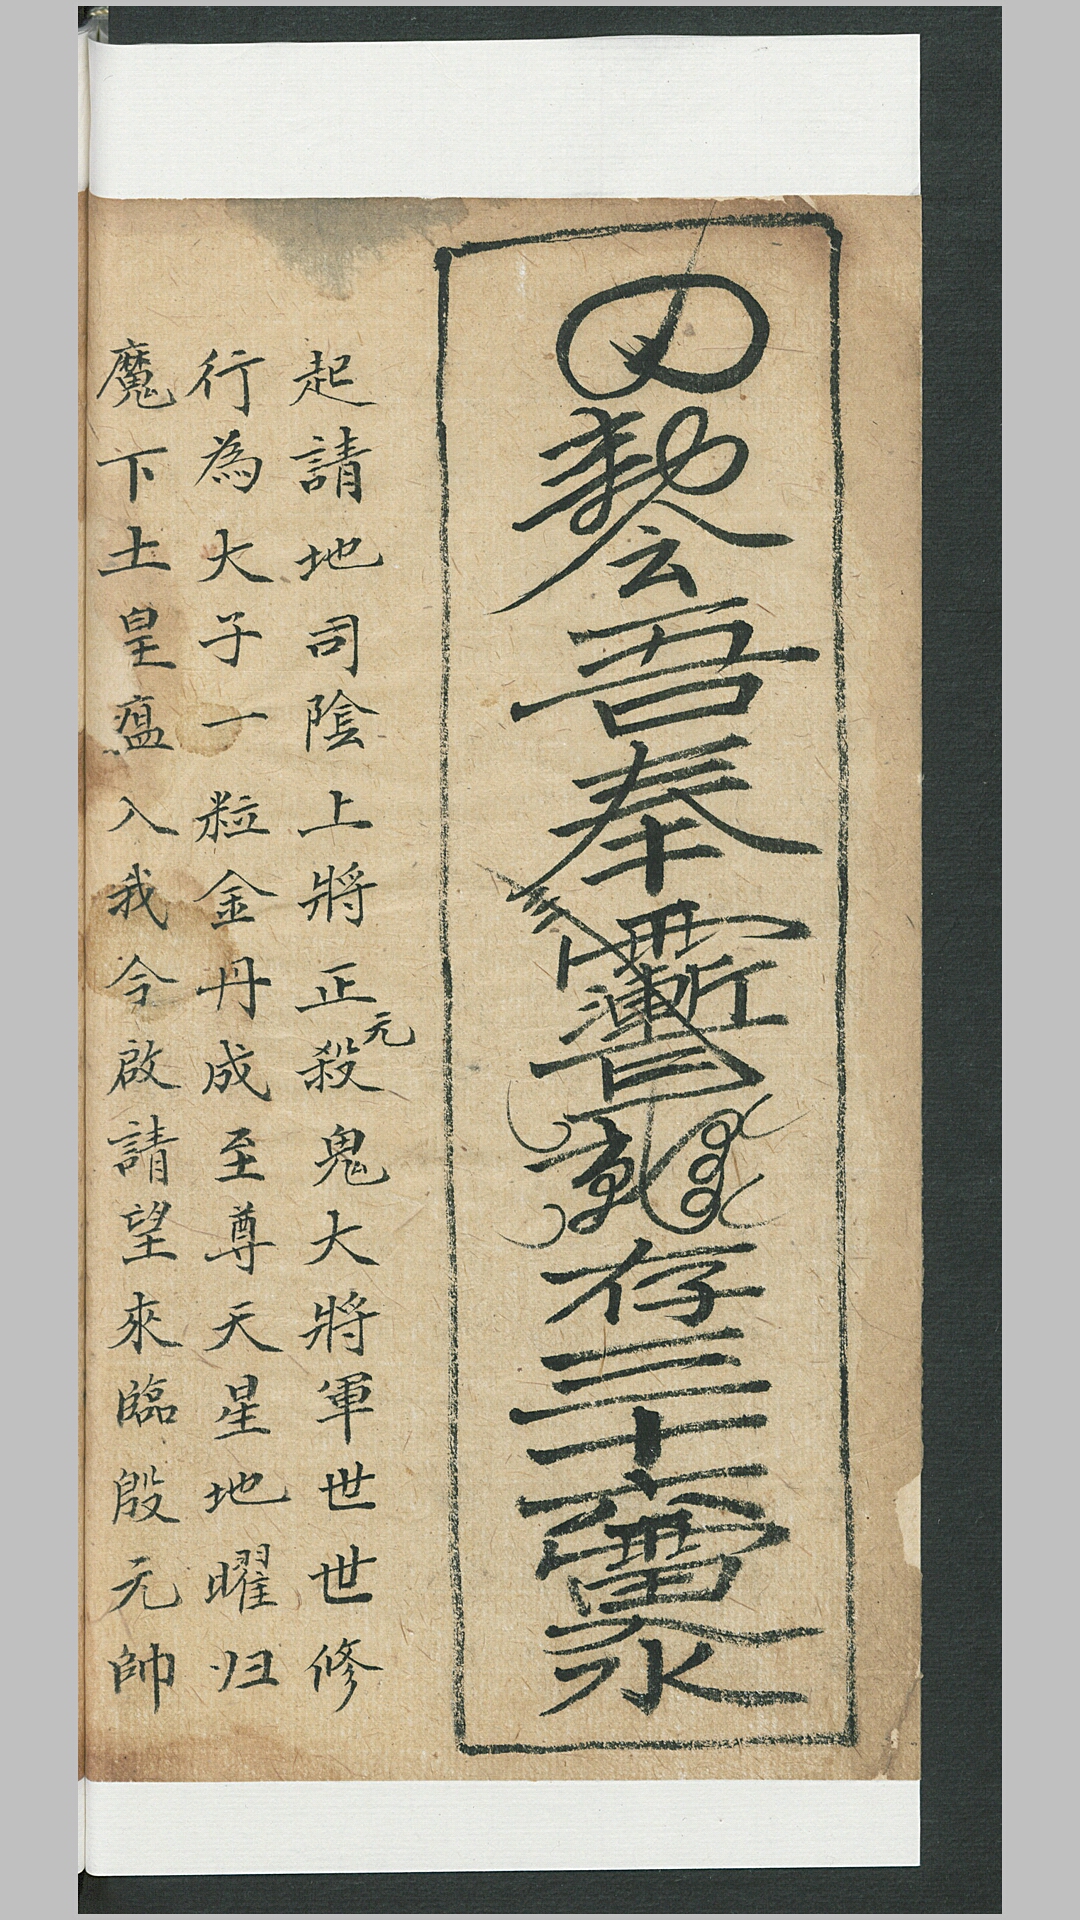 吾奉
存三十六
水
起請地司陰上將正元殺鬼大將軍世世修
行為大子一粒金丹成至尊天星地曜归
魔下土皇瘟入我今啟請望來臨殷元帥